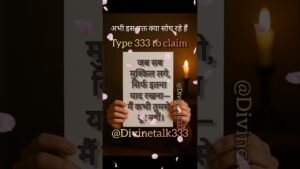 अभी इस वक्त क्या सोच रहे हैं
Type 333 to claim
जब सब
मुश्किल लगे,
सिर्फ इतना
याद रखना—
मैं कभी तुमसे
@Divinetalk333
@Divine
मैं